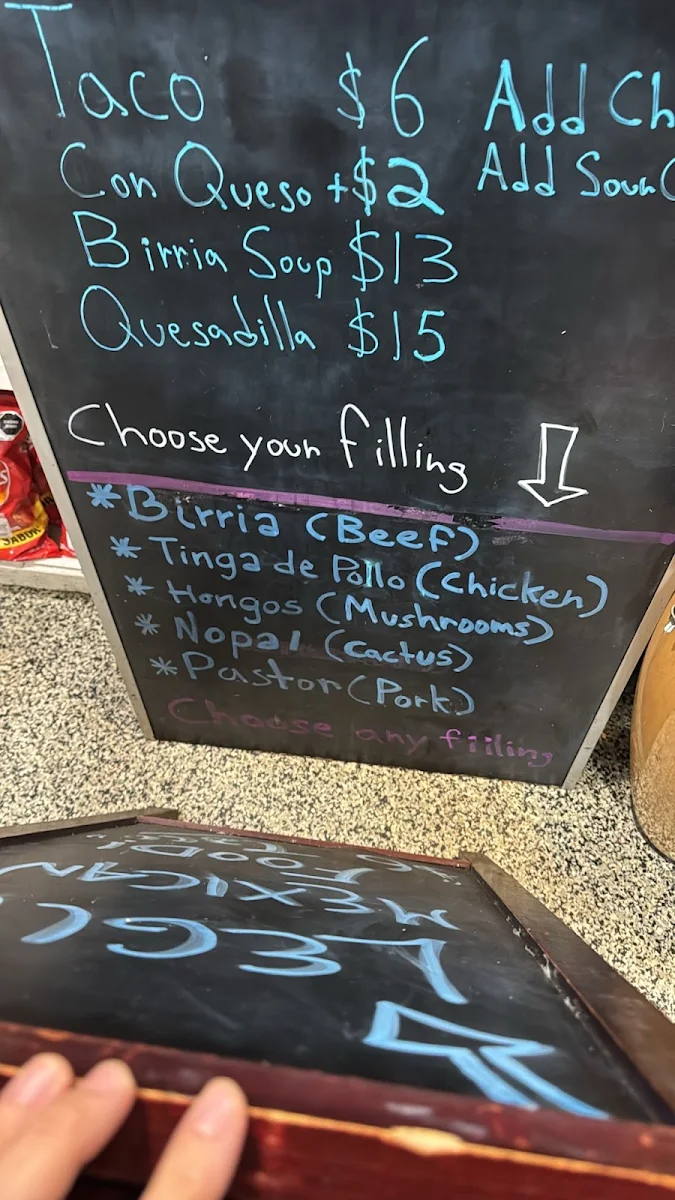 Taco $6 Add Ch
Con Queso +$2 Add Sour C
Birria Soup $13
Quesadilla $15
Choose your filling
*Birria (Beef)
* Tinga de Pollo (Chicken)
* Hongos (Mushrooms)
* Nopal (Cactus)
*Pastor (Pork)
Choose any filling
SABOR
FOOD!
MEXICAN